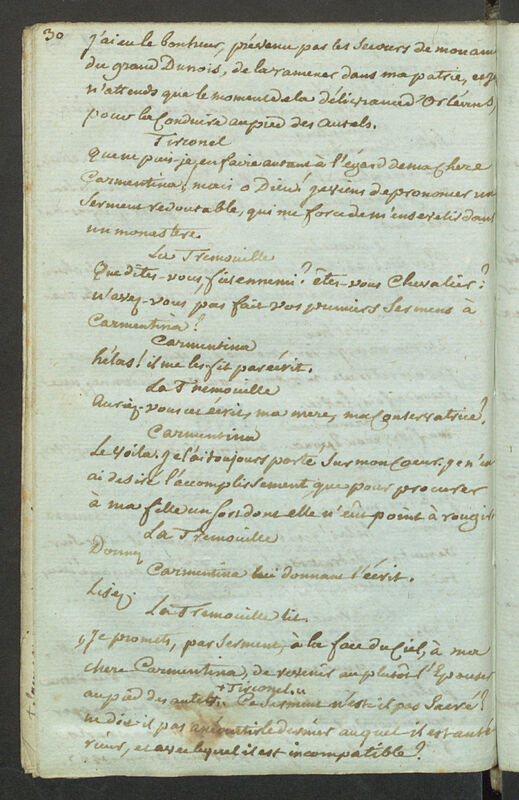 30
j'ai eu le bonheur, prévenu par les secours de mon ami
du grand Dunois, de la ramener dans ma patrie, et je
n'attends que le moment de la délivrance d'Orléans,
pour la conduire au pied des autels.
Tirconel
que ne puis-je en faire autant à l'égard de ma chere
Carmentina! mais o Dieu! je viens de prononcer un
Serment redoutable, qui me force de m'ensevelir dans
un monastere.
La Tremouille
Que dites-vous, fier ennemi? êtes-vous Chevalier?
n'avez-vous pas fait vos premiers Sermens à
Carmentina?
Carmentina
hélas! il me les fit par écrit.
La Tremouille
Auriez-vous cet écrit, ma mere, ma Conservatrice?
Carmentina
Le voila: je l'ai toujours porté Sur mon Coeur, je n'en
ai desiré l'accomplissement que pour procurer
à ma fille un Sort dont elle n'eût point à rougir.
La Tremouille
Donnez
Carmentina lui donnant l'écrit.
Lisez.
La Tremouille lit.
"Je promets, par Serment, à la face du Ciel, à ma
chere Carmentina, de revenir au plutôt l'Epouser
au pied des autels. + Tirconel." Ce Serment n'est-il pas Sacré?
ne doit-il pas le dernier auquel il est anté
rieur, et avec lequel il est incompatible?